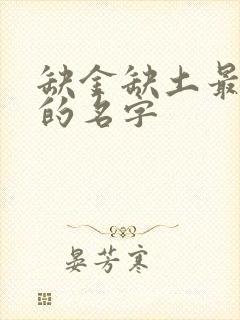 缺金缺土最
的名字
晏芳寒